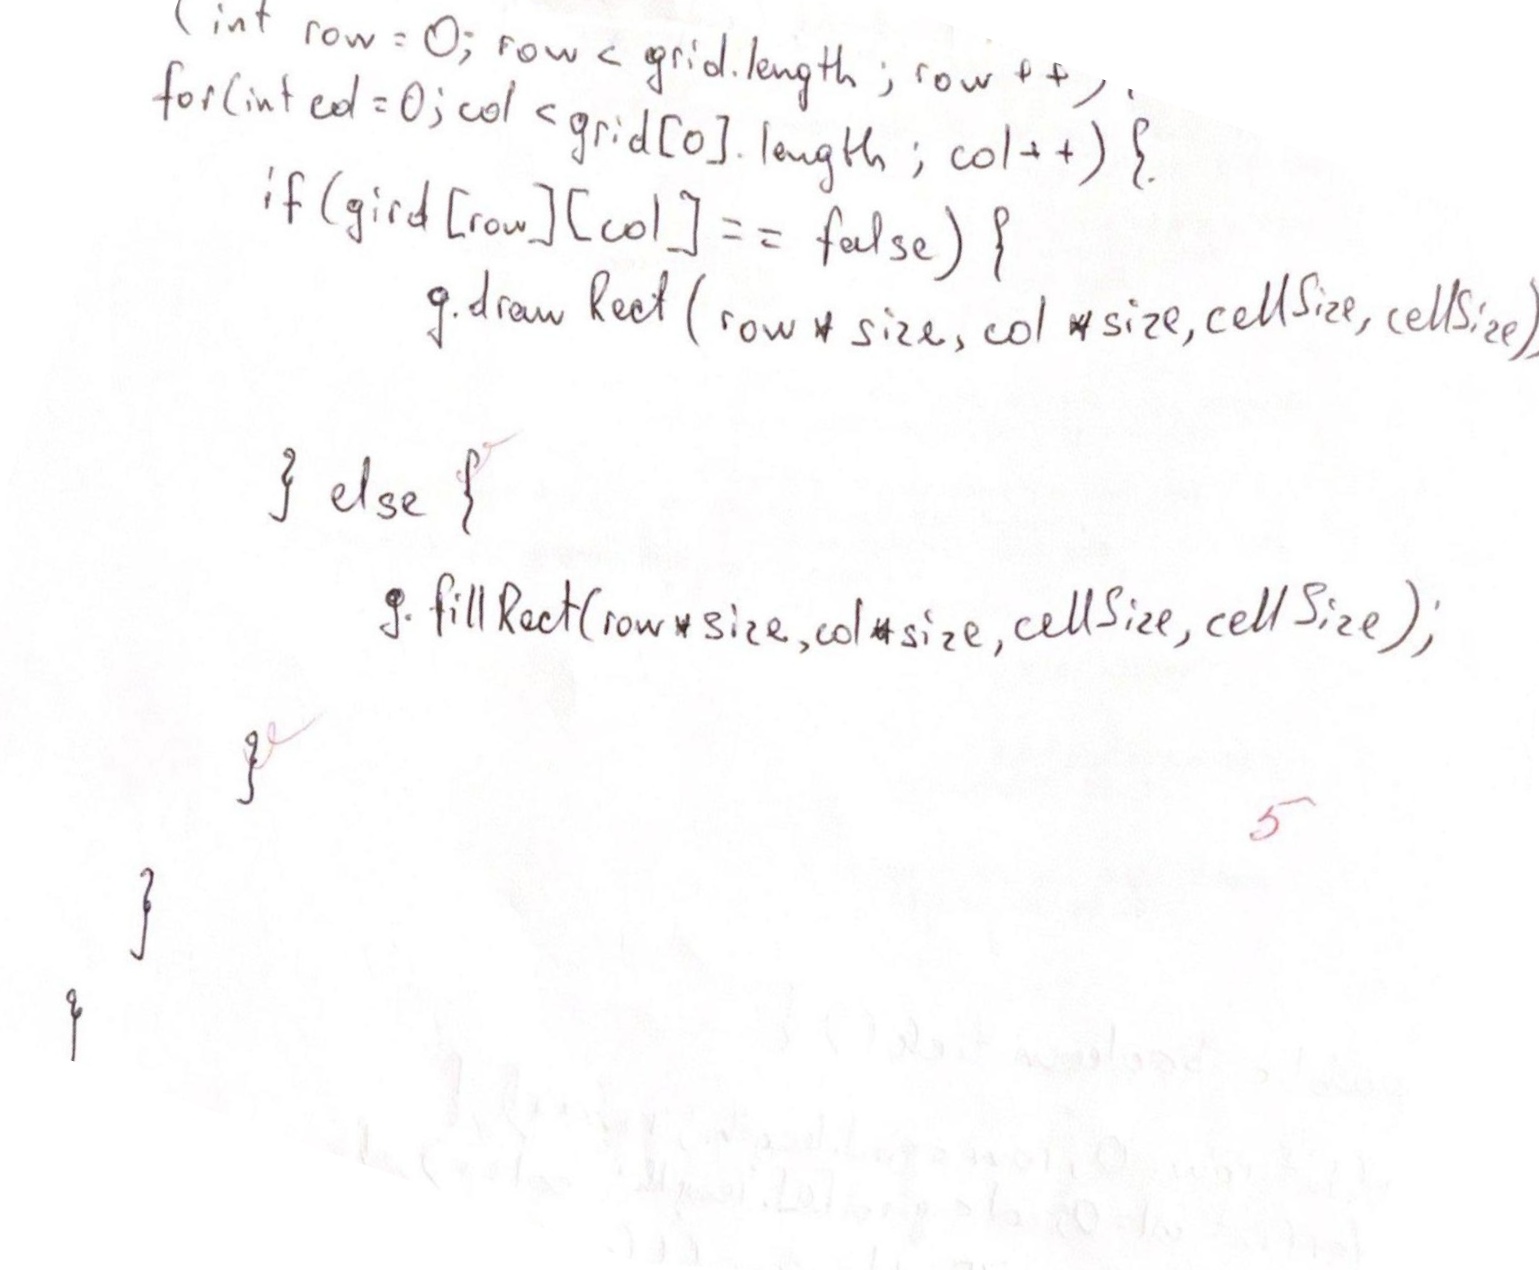 (int row = 0; row < grid.length; row ++)
for(int col = 0; col < grid[0].length; col++) {
if (gird [row][col] == false) {
g.draw Rect (row * size, col * size, cellSize, cellSize)
} else {
g. fill Rect(row * size, col * size, cellSize, cell Size);
}
5
}
}